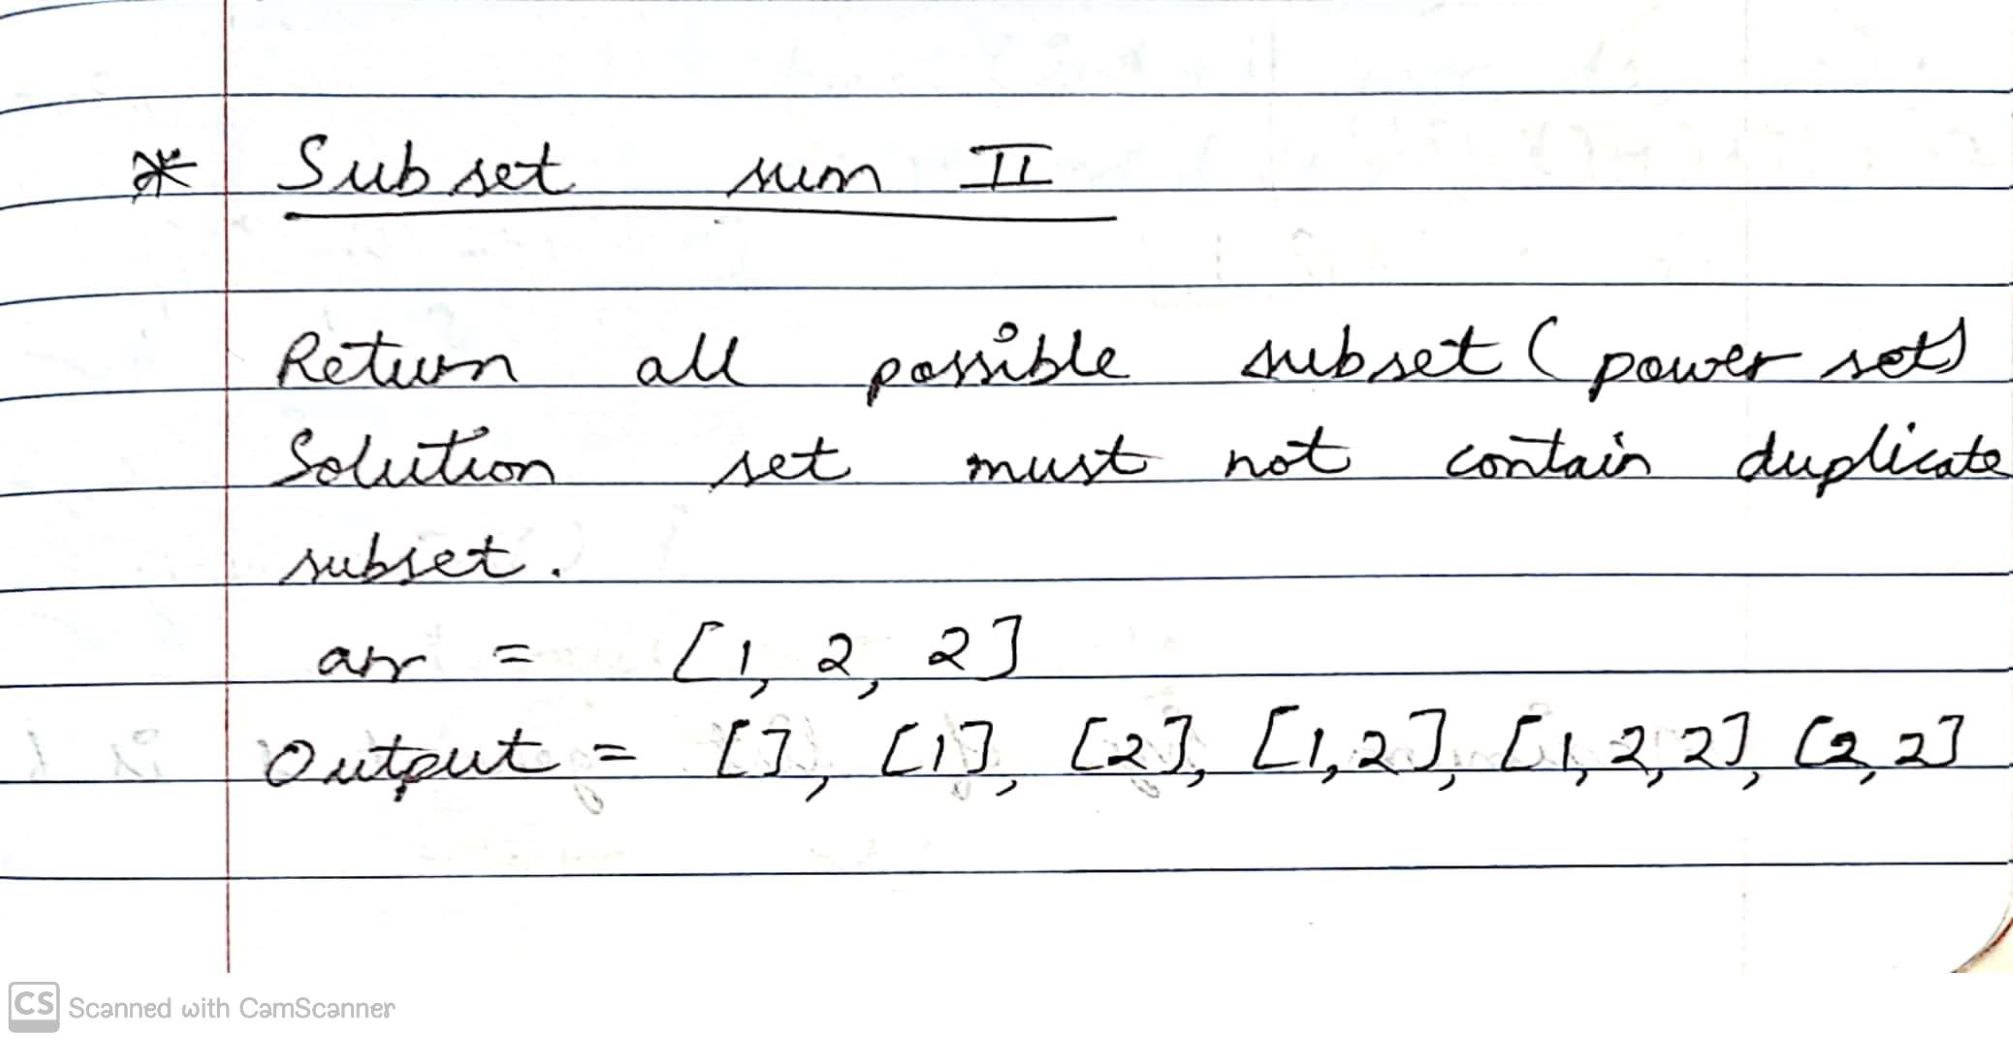 * Subset sum II
Return all possible subset (power set)
Solution set must not contain duplicate
subset.
arr = [1, 2, 2]
Output = [], [1], [2], [1,2], [1,2,2], [2,2]
CS Scanned with CamScanner